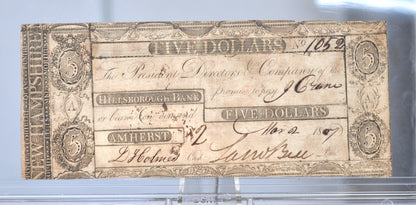 NEW HAMPSHIRE
FIVE DOLLARS No. 1052
The President Directors & Company of the
HILLSBOROUGH BANK promise to pay J Crane
or bearer on demand FIVE DOLLARS
AMHERST Mar 2 180
Cash Saml Bell
5
5
5
5
A
A